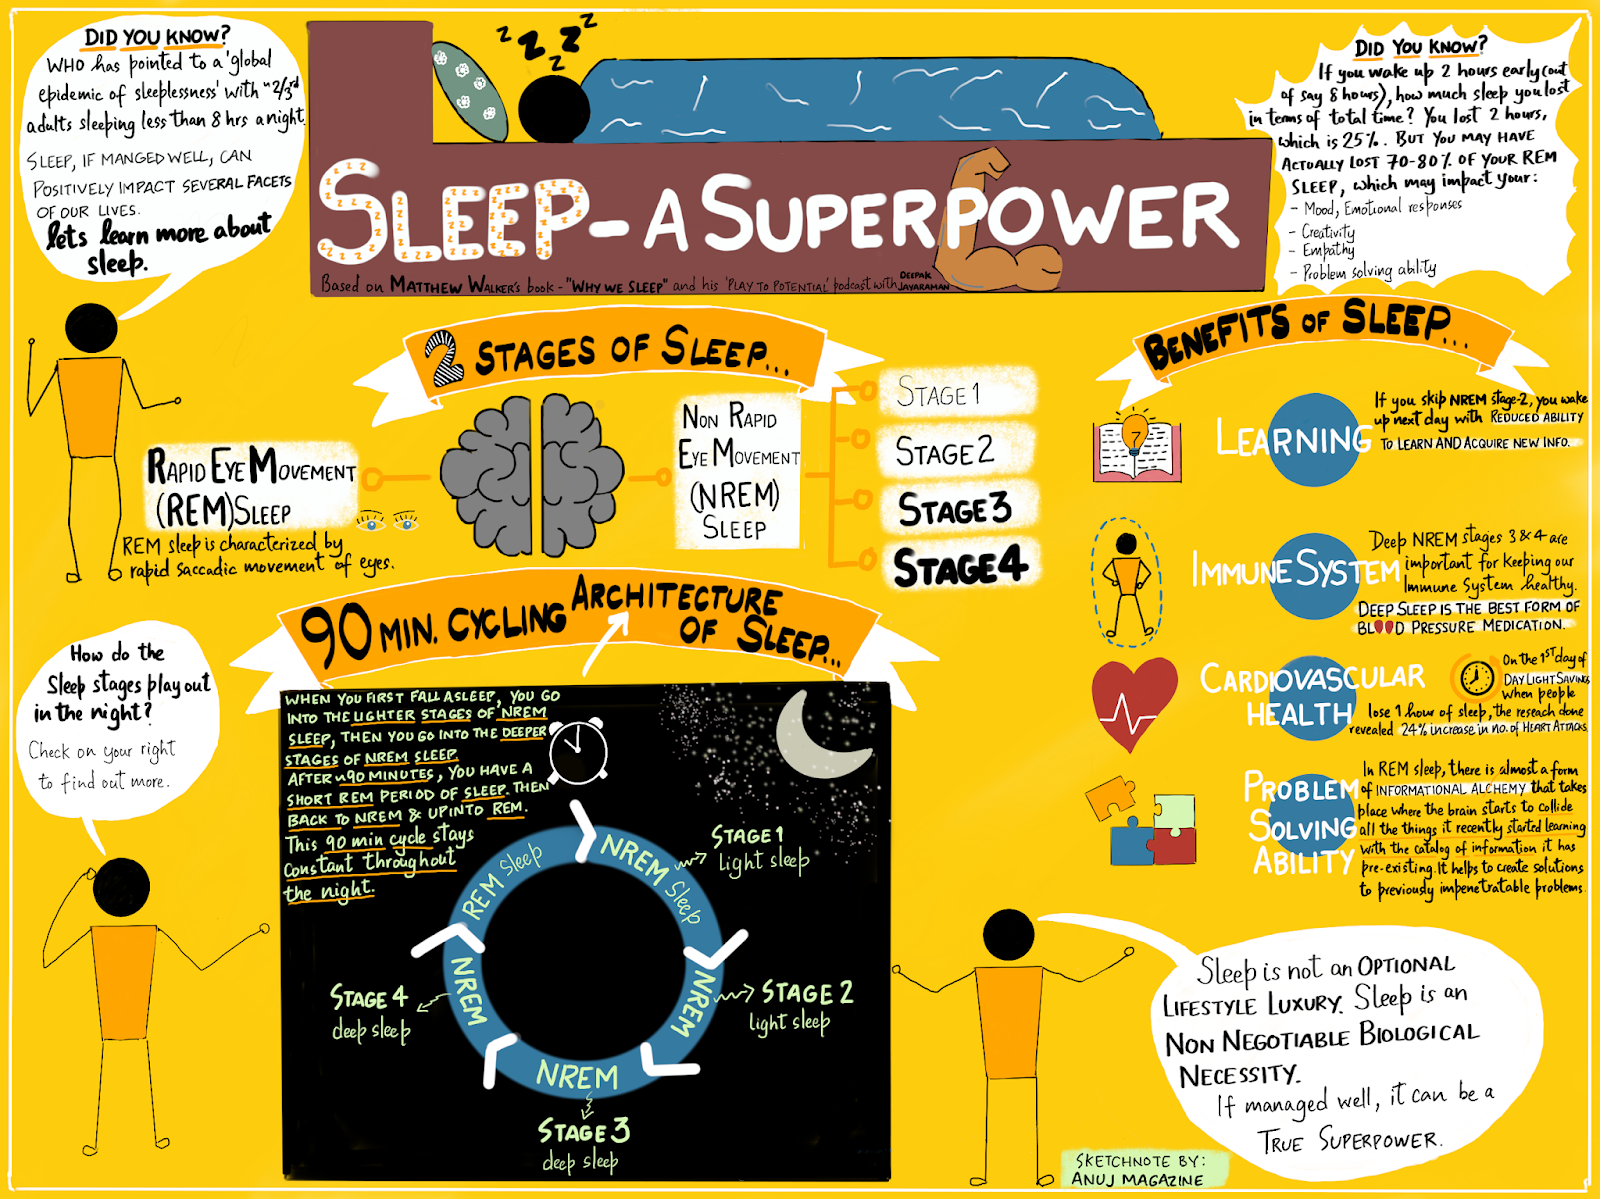 DID YOU KNOW?
WHO has pointed to a 'global
epidemic of sleeplessness' with "2/3rd
adults sleeping less than 8 hrs a night.
SLEEP, IF MANGED WELL, CAN
POSITIVELY IMPACT SEVERAL FACETS
OF OUR LIVES.
lets learn more about
sleep.
z z z z z
SLEEP - A SUPERPOWER
Based on MATTHEW WALKER's book - "WHY WE SLEEP" and his 'PLAY TO POTENTIAL' podcast with DEEPAK JAYARAMAN
DID YOU KNOW?
If you wake up 2 hours early (out
of say 8 hours), how much sleep you lost
in terms of total time? You lost 2 hours,
which is 25%. BUT YOU MAY HAVE
ACTUALLY LOST 70-80% OF YOUR REM
SLEEP, which may impact your:
- Mood, Emotional responses
- Creativity
- Empathy
- Problem solving ability
2 STAGES OF SLEEP...
RAPID EYE MOVEMENT
(REM) SLEEP
REM sleep is characterized by
rapid saccadic movement of eyes.
NON RAPID
EYE MOVEMENT
(NREM)
SLEEP
STAGE 1
STAGE 2
STAGE 3
STAGE 4
BENEFITS OF SLEEP...
LEARNING
If you skip NREM stage-2, you wake
up next day with REDUCED ABILITY
TO LEARN AND ACQUIRE NEW INFO.
IMMUNE SYSTEM
Deep NREM stages 3 & 4 are
important for keeping our
Immune System healthy.
DEEP SLEEP IS THE BEST FORM OF
BLOOD PRESSURE MEDICATION.
CARDIOVASCULAR
HEALTH
On the 1ST day of
DAY LIGHT SAVINGS
when people
lose 1 hour of sleep, the reseach done
revealed 24% increase in no. of HEART ATTACKS.
PROBLEM
SOLVING
ABILITY
In REM sleep, there is almost a form
of INFORMATIONAL ALCHEMY that takes
place where the brain starts to collide
all the things it recently started learning
with the catalog of information it has
pre-existing. It helps to create solutions
to previously impenetratable problems.
90 MIN. CYCLING ARCHITECTURE
OF SLEEP...
How do the
Sleep stages play out
in the night?
Check on your right
to find out more.
WHEN YOU FIRST FALL ASLEEP, YOU GO
INTO THE LIGHTER STAGES OF NREM
SLEEP, THEN YOU GO INTO THE DEEPER
STAGES OF NREM SLEEP.
AFTER ~90 MINUTES, YOU HAVE A
SHORT REM PERIOD OF SLEEP. THEN
BACK TO NREM & UP INTO REM.
This 90 min cycle stays
Constant throughout
the night.
NREM Sleep
STAGE 1
light sleep
NREM
STAGE 2
light sleep
NREM
STAGE 3
deep sleep
NREM
STAGE 4
deep sleep
REM Sleep
Sleep is not an OPTIONAL
LIFESTYLE LUXURY. Sleep is an
NON NEGOTIABLE BIOLOGICAL
NECESSITY.
If managed well, it can be a
TRUE SUPERPOWER.
SKETCHNOTE BY:
ANUJ MAGAZINE